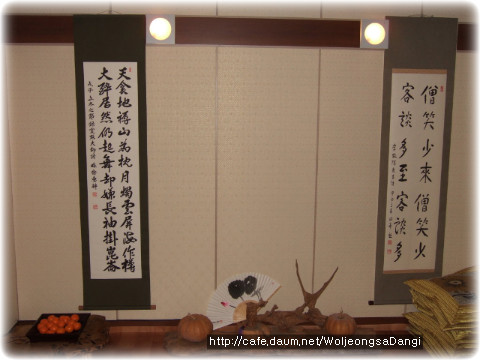 天衾地褥山為枕月燭雲屏海作樽
大醉居然仍起舞却嫌長袖掛崑崙
僧笑少來僧笑少
客談多至客談多
http://cafe.daum.net/WoljeongsaDangi